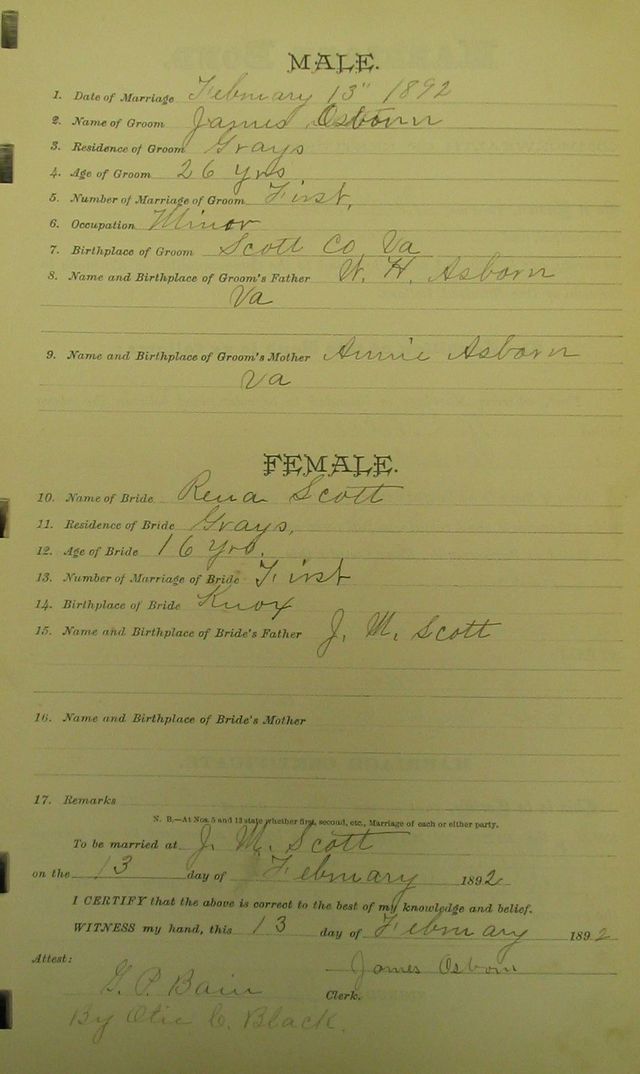 MALE.
1. Date of Marriage February 13" 1892
2. Name of Groom James Osborn
3. Residence of Groom Grays
4. Age of Groom 26 yrs
5. Number of Marriage of Groom First,
6. Occupation Minor
7. Birthplace of Groom Scott Co Va
8. Name and Birthplace of Groom's Father W. H. Asborn
Va
9. Name and Birthplace of Groom's Mother Annie Asborn
Va
FEMALE.
10. Name of Bride Rena Scott
11. Residence of Bride Grays,
12. Age of Bride 16 yrs.
13. Number of Marriage of Bride First
14. Birthplace of Bride Knox
15. Name and Birthplace of Bride's Father J. M. Scott
16. Name and Birthplace of Bride's Mother
17. Remarks
N. B.—At Nos. 5 and 13 state whether first, second, etc., Marriage of each or either party.
To be married at J. M. Scott
on the 13 day of February 1892
I CERTIFY that the above is correct to the best of my knowledge and belief.
WITNESS my hand, this 13 day of February 1892
Attest: James Osborn
G. P. Bain Clerk.
By Otie C. Black.